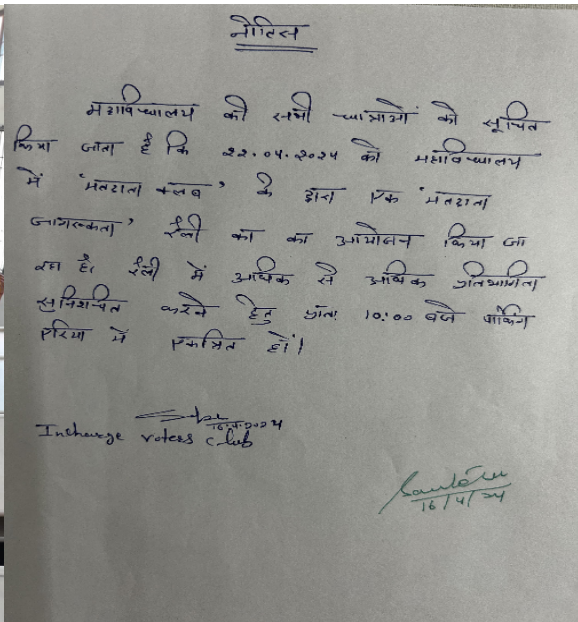 नोटिस
महाविद्यालय की सभी छात्राओं को सूचित
किया जाता है कि २२.०४.२०२४ को महाविद्यालय
में 'मतदाता क्लब' के द्वारा एक 'मतदाता
जागरूकता' रैली का का आयोजन किया जा
रहा है। रैली में अधिक से अधिक प्रतिभागिता
सुनिश्चित करने हेतु प्रातः 10:00 बजे पार्किंग
एरिया में एकत्रित हों।
16.4.2024
Incharge voters club
16/4/24